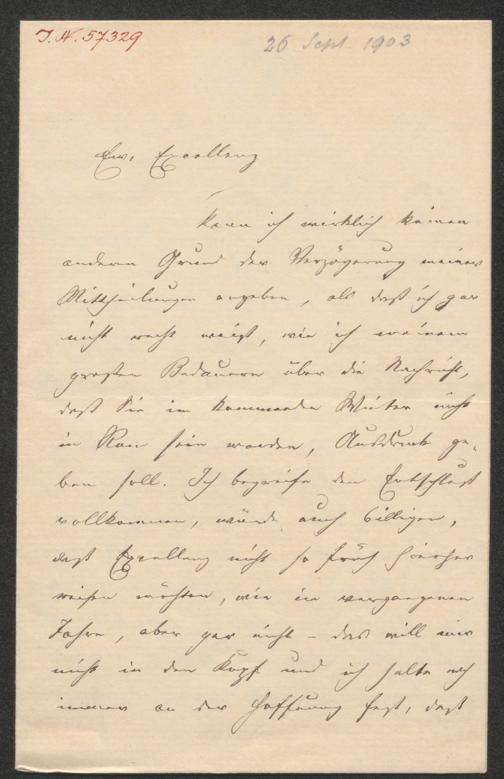 J. N. 57329
26 Sept. 1903
Ew. Excellenz
kann ich wirklich keinen
anderen Grund der Verzögerung meiner
Mittheilungen angeben, als daß ich gar
nicht recht weiß, wie ich meinem
großen Bedauern über die Nachricht,
daß Sie im kommenden Winter nicht
in Rom sein werden, Ausdruck ge-
ben soll. Ich begreife den Entschluß
vollkommen, würde auch billigen,
daß Excellenz nicht so früh hierher
reisen möchten, wie im vergangenen
Jahre, aber gar nicht – das will mir
nicht in den Kopf und ich halte noch
immer an der Hoffnung fest, daß